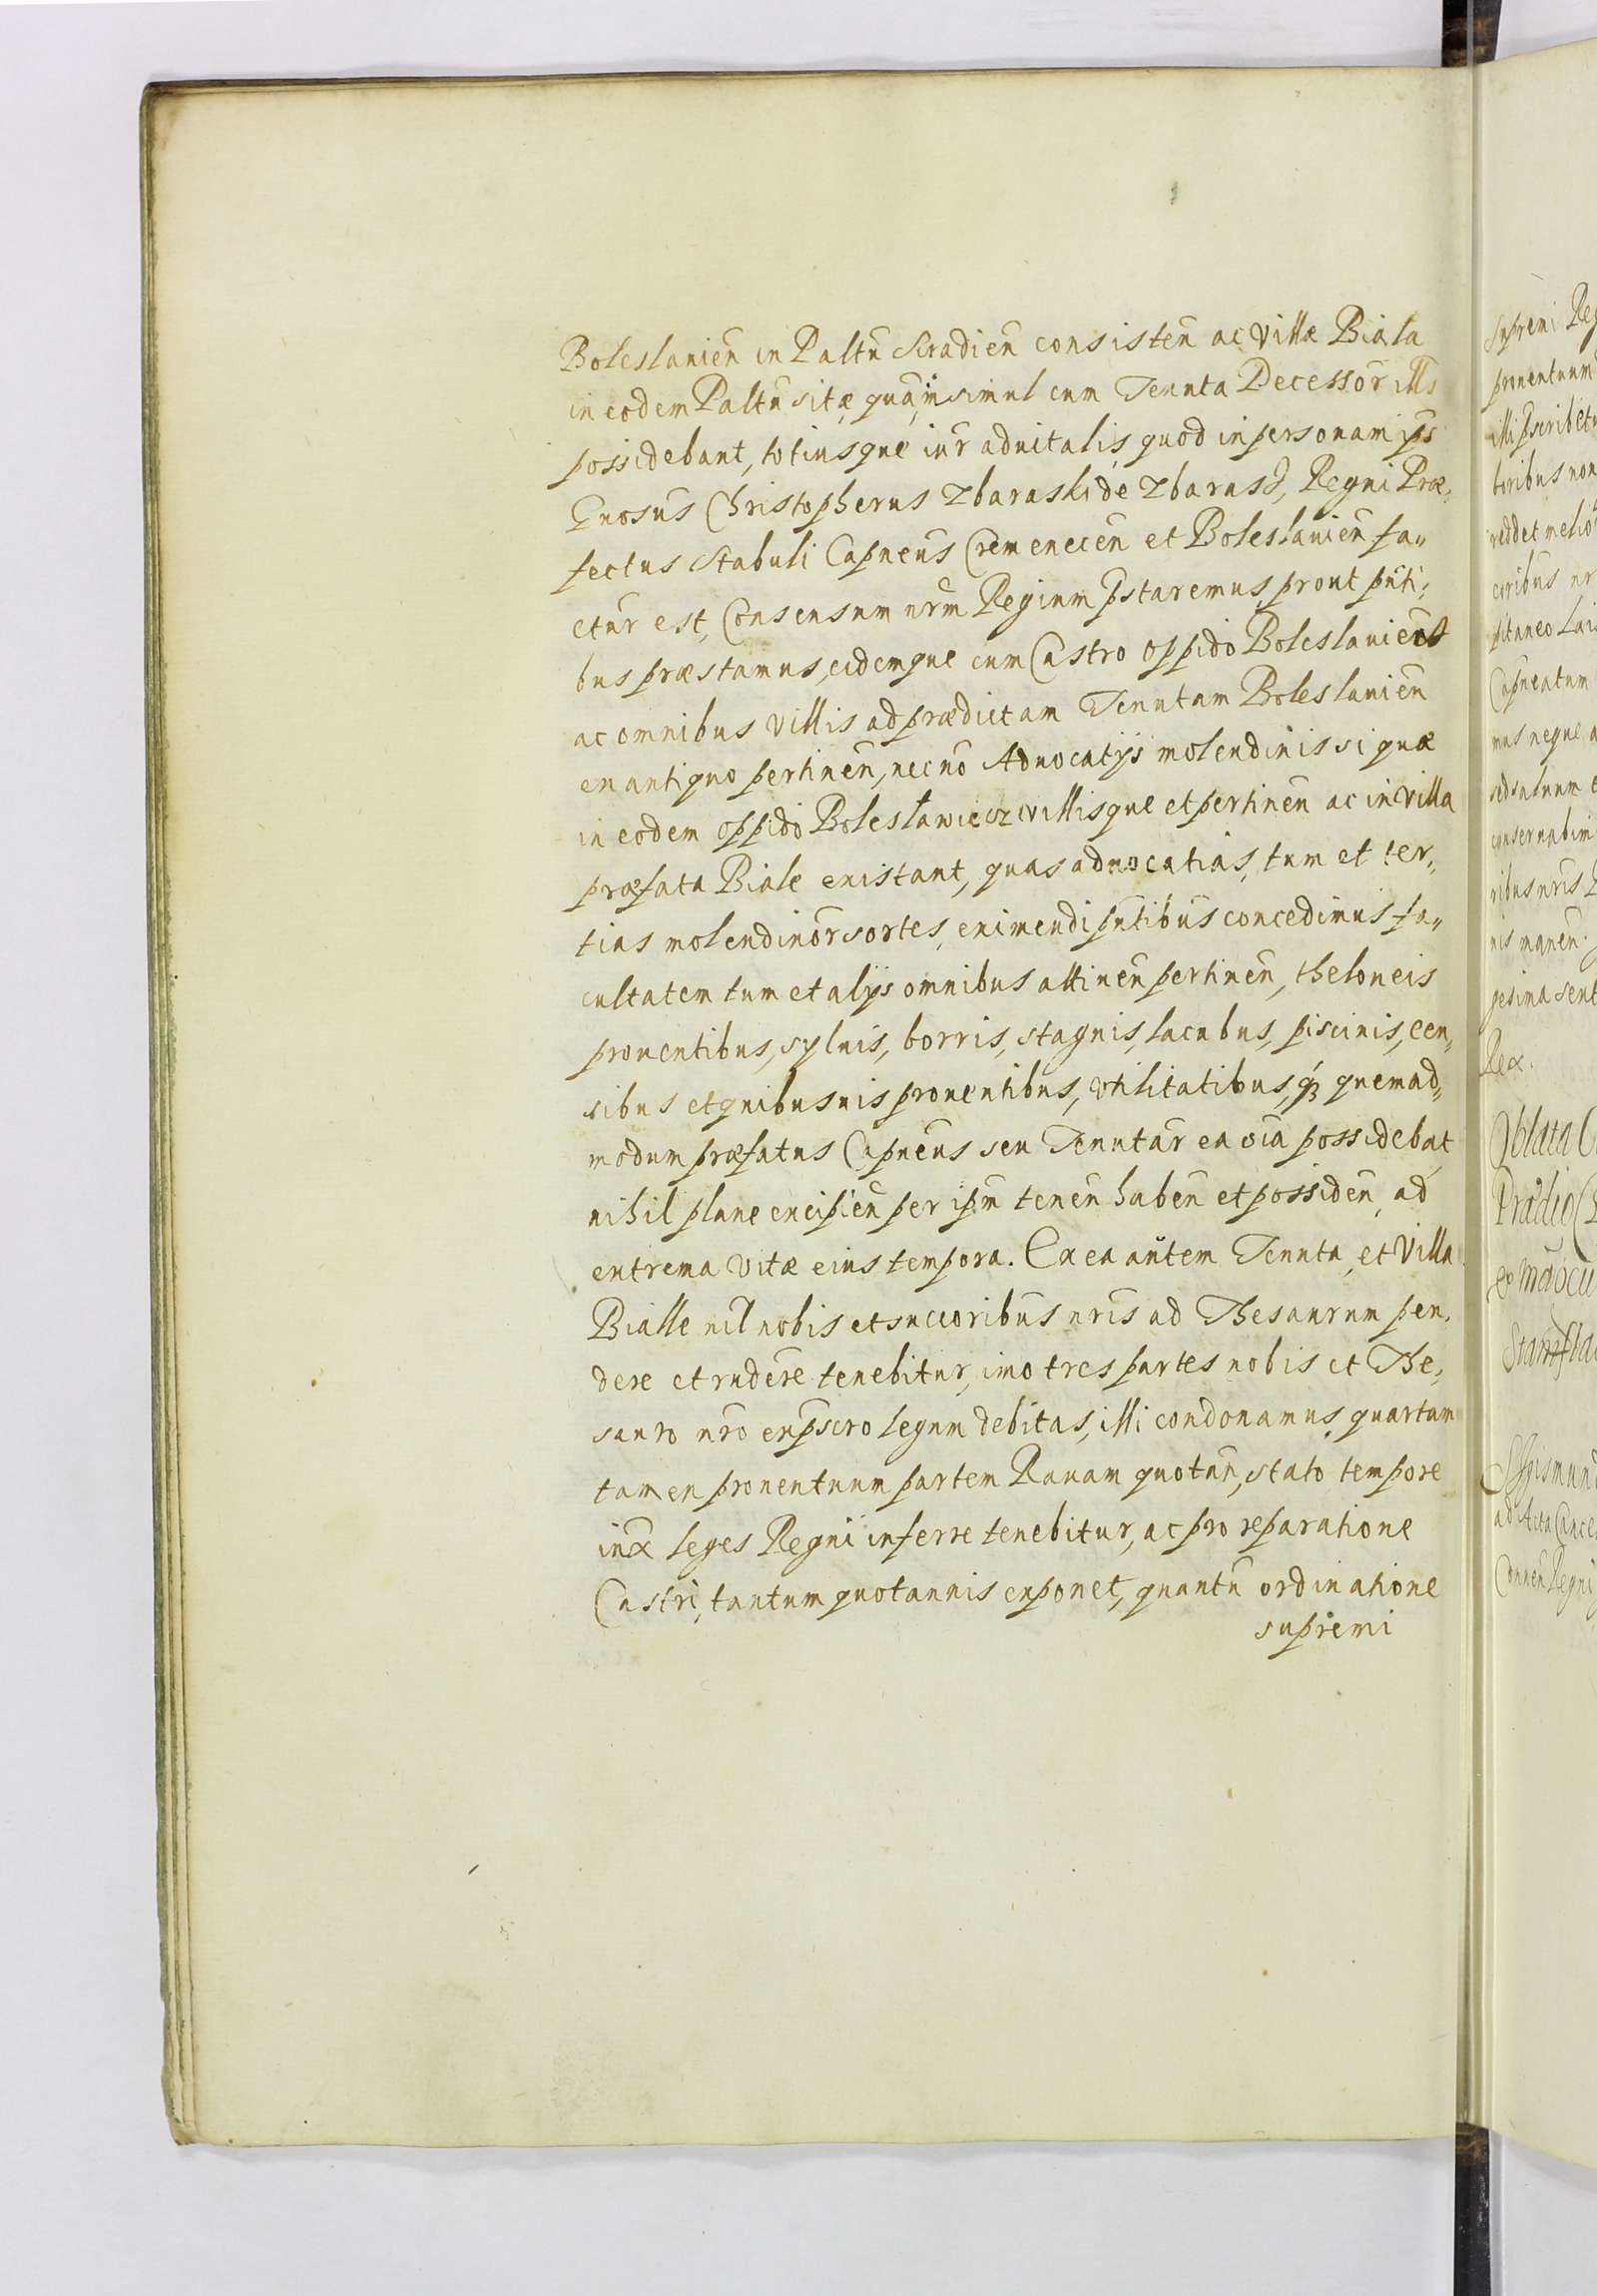 Boleslauien̄ in Paltū Siradien̄ consisten̄ ac Villæ Biala
in eodem Paltū sitæ, quam simul cum Tenuta Decessor̄ ills
possidebant, totiusque iur̄ aduitalis, quod in personam ips̄
Gnosūs Christopherus Zbaraski de Zbarasz, Regni Præ,
fectus Stabuli Capneūs Cremenecen̄ et Boleslauien̄ fa„
ctur̄ est, Consensum nr̄m Regium p̄staremus, prout pn̄ti,
bus præstamus, eidemque cum Castro oppido Boleslauien̄
ac omnibus villis ad prædictam Tenutam Boleslauien̄
ex antiquo pertinen̄, necnō Aduocatijs molendinis si quæ
in eodem oppido Bolesławiecz villisque et pertinen̄ ac in villa
præfata Biale existant, quas aduocatias, tum et ter„
tias molendinor̄ sortes, eximendi pn̄tibūs concedimus fa„
cultatem tum et alijs omnibus attinen̄ pertinen̄, theloneis
prouentibus, syluis, borris, stagnis, lacubus, piscinis, cen„
sibus et quibusuis prouentibus, vtilitatibusq́ʒ quemad„
modum præfatus Capneūs seu Tenutar̄ ea oīa possidebat
nihil plane excipien̄ per ipm̄ tenen̄ haben̄ et possiden̄, ad
extrema vitæ eius tempora. Ex ea aūtem Tenuta, et Villa
Bialle nil nobis et succoribūs nrīs ad Thesaurum pen,
dere et rudēre tenebitur, imo tres partes nobis et The,
sauro nr̄o ex p̄scro legum debitas, illi condonamus, quartam
tamen prouentuum partem Rauam quotan̄, stato tempore
iux̄ leges Regni inferre tenebitur, ac pro reparatione
Castri, tantum quotannis exponet, quantū ordinatione
supremi
Supremi Reg
prouentuum
illi p̄scribetu
toribus non
reddet melio
coribus nr
pitaneo Lai
Capneatum
mus neque a
sed saluum e
conseruabim
ribus nrīs
nis manen̄.
gesima sext
Rex.
Oblata
Prædio
Stanisla
Sigismund
ad Acta Cance
Regni